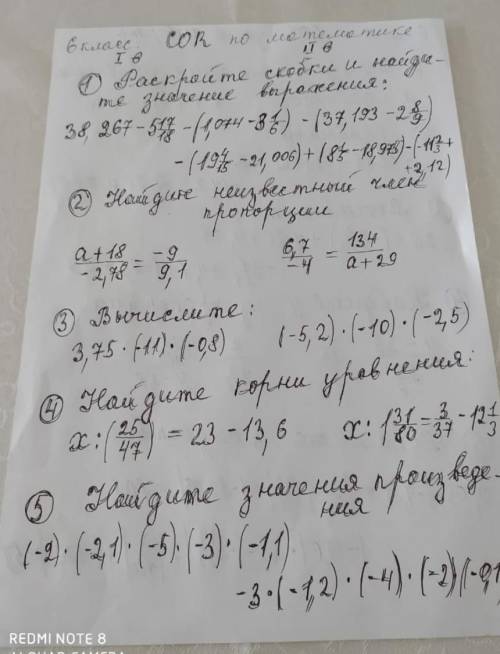 6 класс. СОR по математике
I в II в
① Раскройте скобки и найди-
те значение выражения:
38,267 - 5 17/18 - (1,074 - 3 1/6) - (37,193 - 2 8/9)
- (19 4/15 - 21,006) + (8 1/5 - 18,975) - (-11 2/3 +
+ 2,12)
② Найдите неизвестный член
пропорции
a+18/-2,78 = -9/9,1 6,7/-4 = 134/a+29
③ Вычислите:
3,75 · (-1,1) · (-0,8) (-5,2) · (-10) · (-2,5)
④ Найдите корни уравнения:
x : (25/47) = 23 - 13,6 x : 1 31/80 = 3/37 - 12 1/3
⑤ Найдите значения произведе-
ния
(-2) · (-2,1) · (-5) · (-3) · (-1,1)
-3 · (-1,2) · (-4) · (-2) (-0,1
REDMI NOTE 8